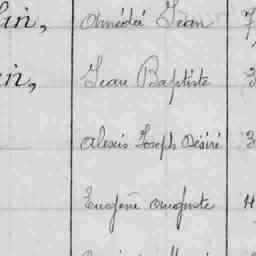 lin, Amédée Jean 7
in, Jean Baptiste 3
Alexis Joseph Désiré 3
Eugène Auguste 4